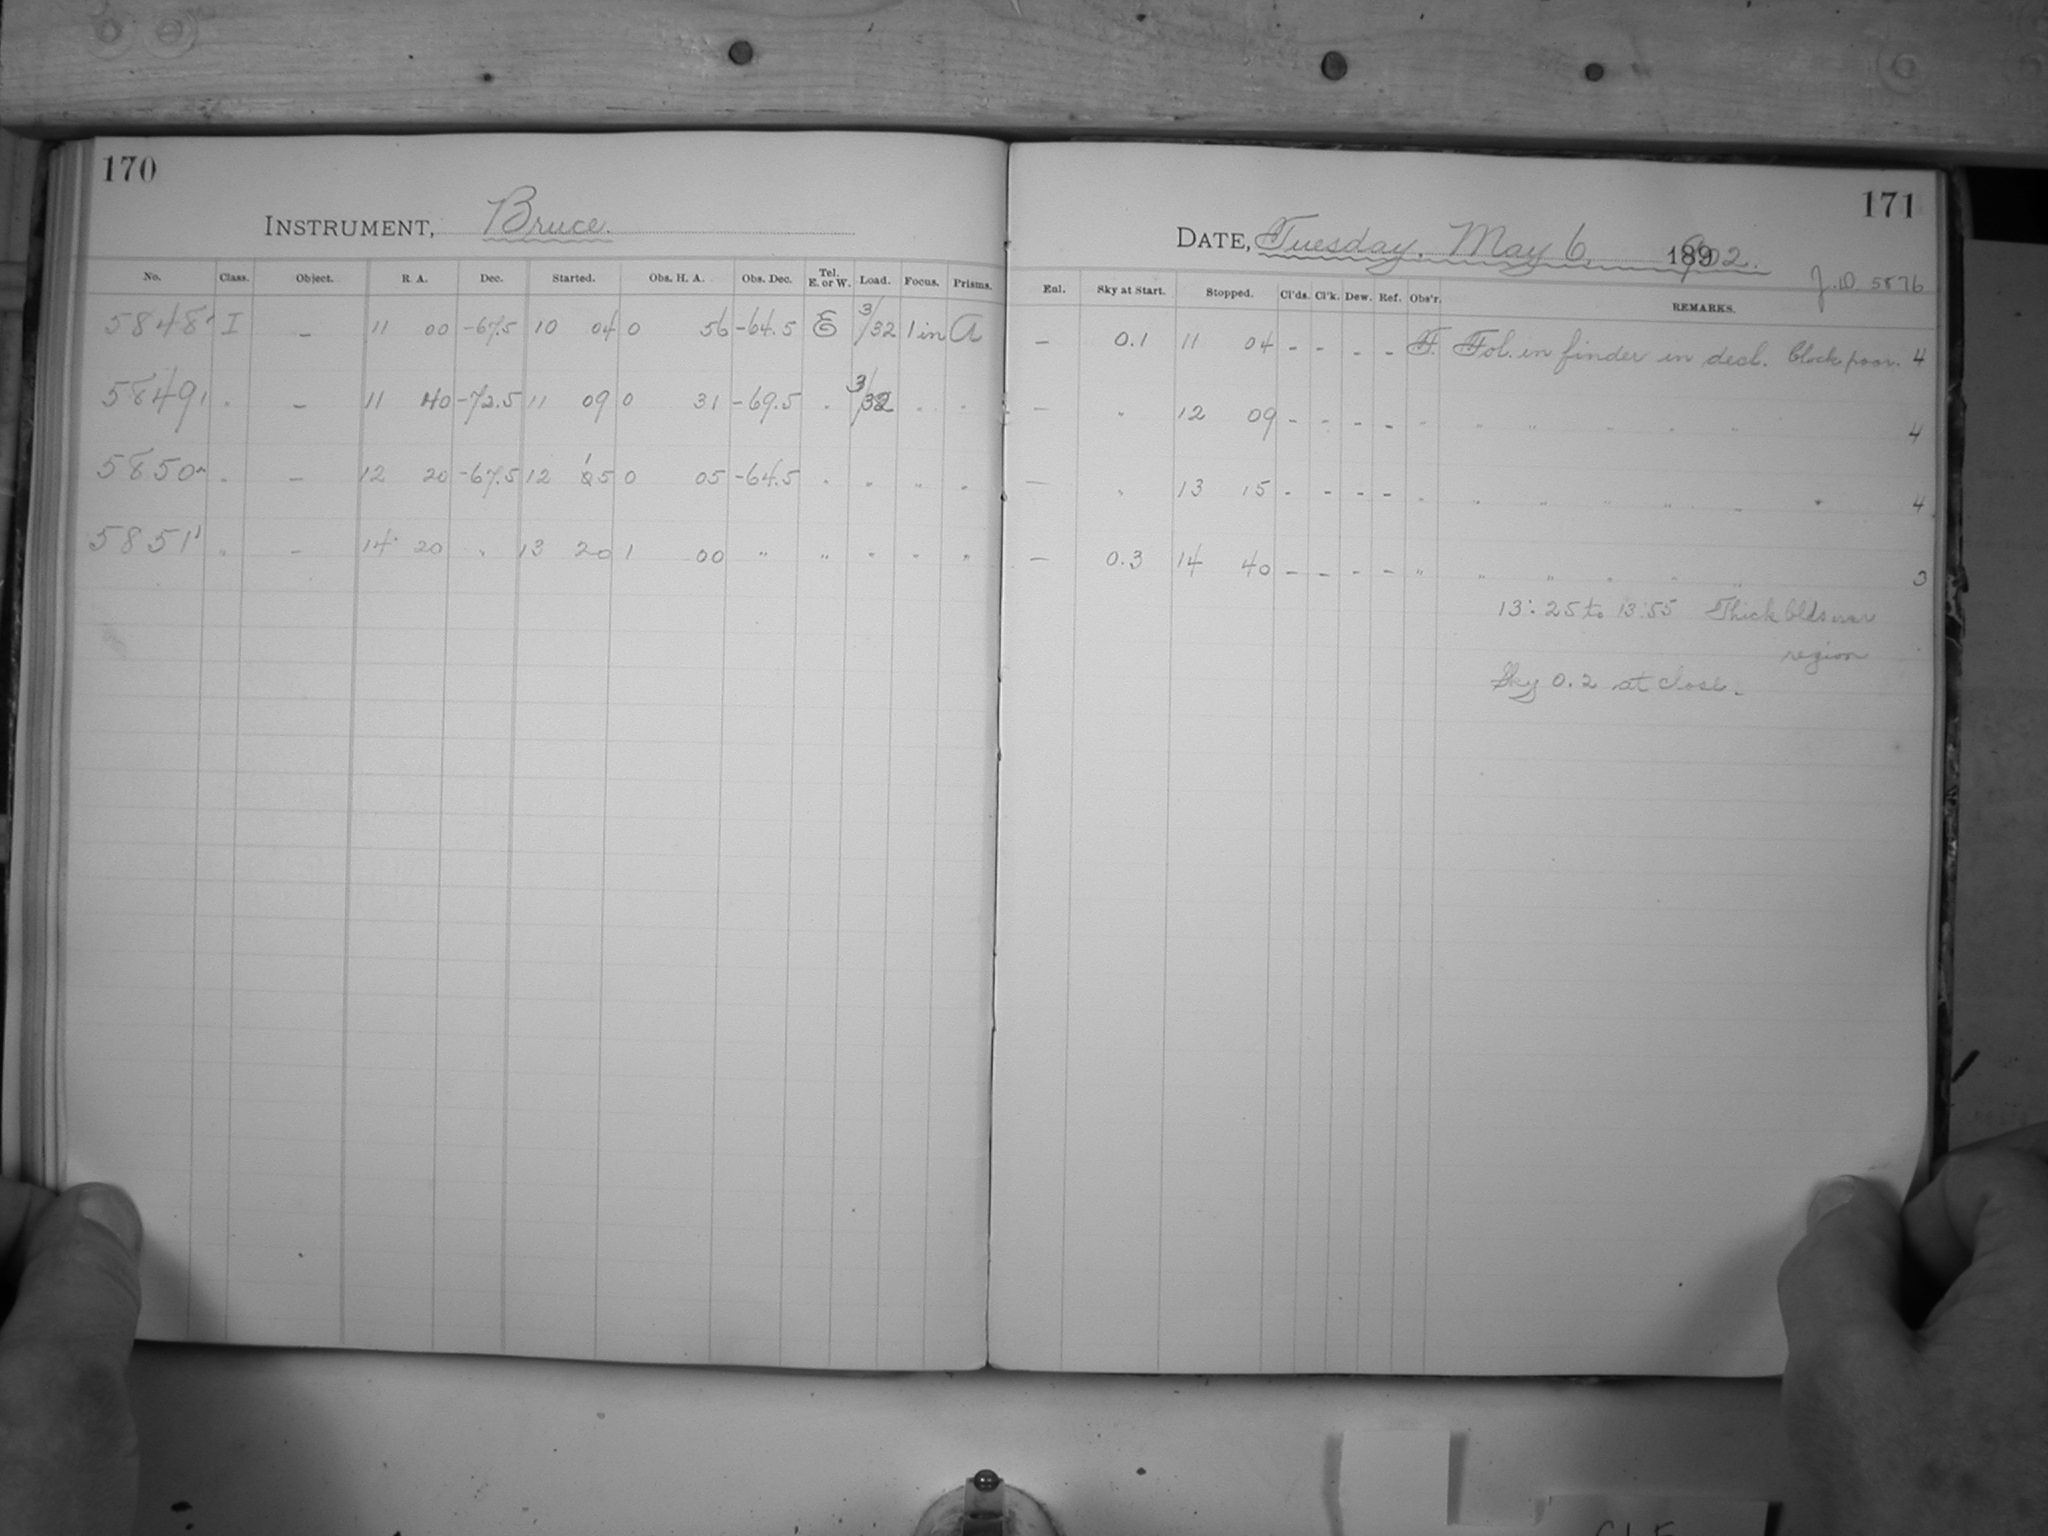 170
INSTRUMENT, Bruce.
No. Class. Object. R. A. Dec. Started. Obs. H. A. Obs. Dec. Tel. E. or W. Load. Focus. Prisms.
5848 I – 11 00 -67.5 10 04 0 56 -64.5 E 3/32 1 in A
5849 " – 11 40 -72.5 11 09 0 31 -69.5 " 3/32 " "
5850 " – 12 20 -67.5 12 15 0 05 -64.5 " " " "
5851 " – 14 20 " 13 20 1 00 " " " " "
171
DATE, Tuesday, May 6, 1902.
J.D. 5876
Enl. Sky at Start. Stopped. Cl'ds. Cl'k. Dew. Ref. Obs'r. REMARKS.
– 0.1 11 04 - - - - F. Fol. in finder in decl. Clock poor. 4
– " 12 09 - - - - " " " " " " 4
– " 13 15 - - - - " " " " " " " 4
– 0.3 14 40 - - - - " " " " " " 3
13:25 to 13:55 Thick Clds over
region
Sky 0.2 at close.